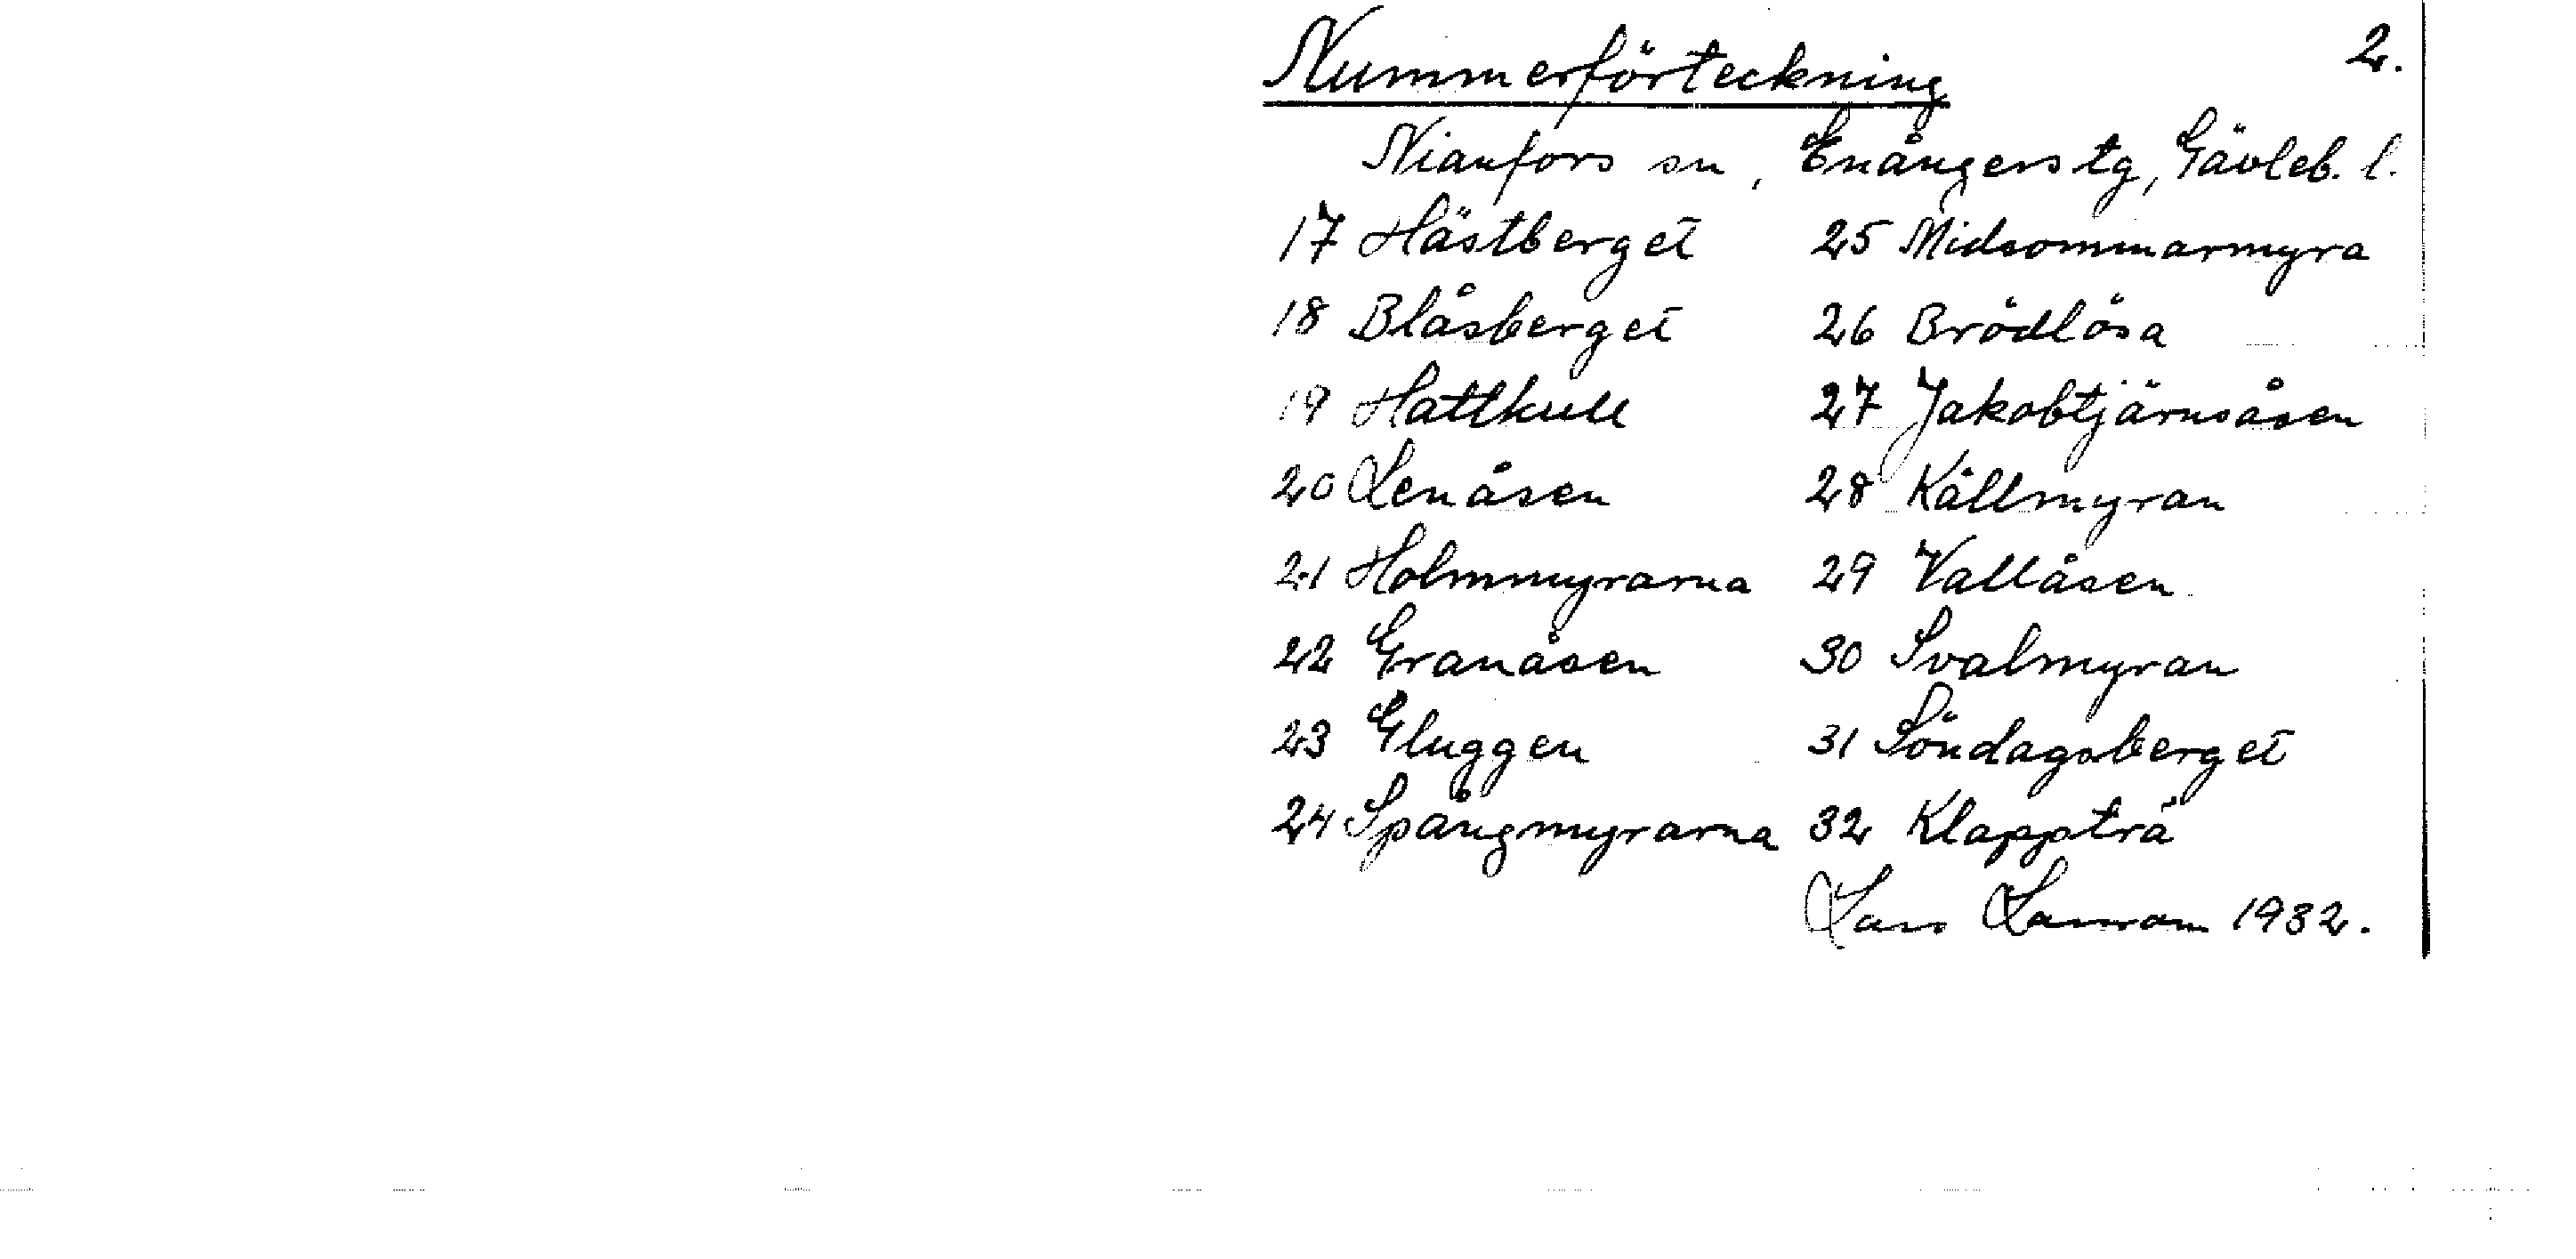 Nummerförteckning 2.
Nianfors sn, Enångers tg, Gävleb. l.
17 Hästberget 25 Midsommarmyra
18 Blåsberget 26 Brödlösa
19 Hattkull 27 Jakobtjärnsåsen
20 Lenåsen 28 Källmyran
21 Holmmyrarna 29 Vallåsen
22 Granåsen 30 Svalmyran
23 Gluggen 31 Söndagsberget
24 Spångmyrarna 32 Klappträ
Lars 1932.